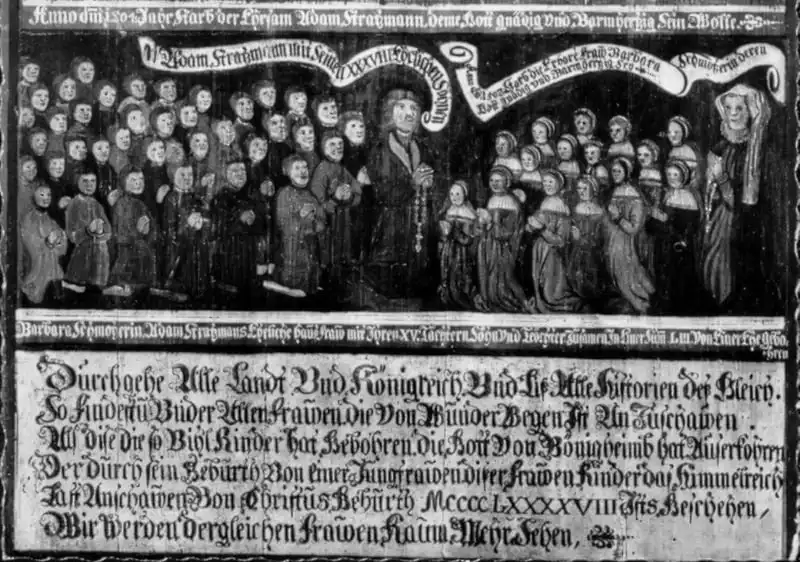 Anno dni 1504 Jahr, Starb der Ehrsam Adam Stratzmann, deme Gott gnädig vnd Barmhertzig Sein Wolle.
Adam Stratzmann mit Seinen XXXVIII Ehelichen Söhnen
Starb die Erbare Fraw Barbara
Schmotzerin deren
Gott gnädig vnd Barmhertzig Sey
Barbara Schmotzerin, Adam Stratzmans Eheliche hausfraw mit Jhren XV. Töchtern, Söhn Vnd Töchter Zusamen In Einer Sum LIII Von Einer Ehe gebo-
hren
Durchgehe Alle Landt Vnd Königreich, Vnd Liß Alle Historien deß Gleich.
So Findestu Vnder Allen Frawen, die Von Wunder Wegen Ist An Zuschawen.
Alß dise die so Vihl Kinder hat Gebohren, die Gott Von Bönigheimb hat Außerkohren
Der durch sein Gebürth Von einer Jungfrawen, diser Frawen Kinder das Himmelreich
Last Anschawen, Von Christus Gebürth MCCCCLXXXXVIII Ists Geschehen,
Wir Werden dergleichen Frawen Kaum Mehr Sehen,